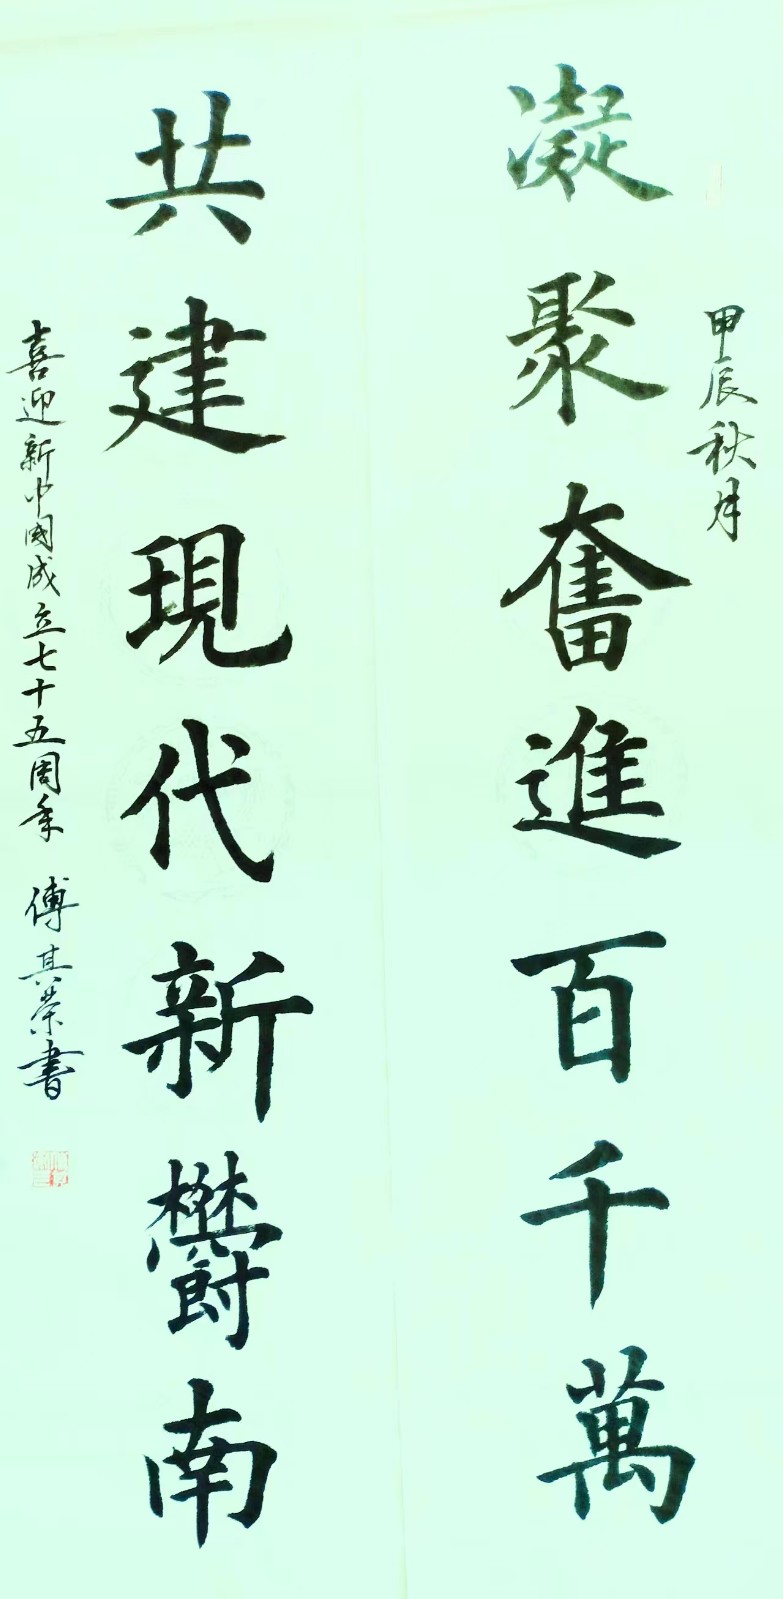 甲辰秋月
凝聚奮進百千萬
共建現代新欝南
喜迎新中國成立七十五周年 傅其荣書